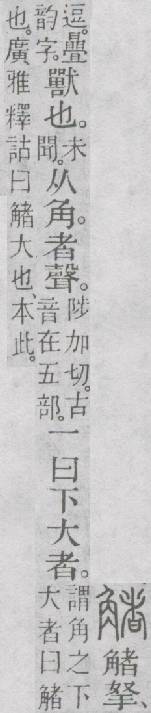 觰
觰拏、
逗。疊
韵字。
獸也。
未
聞。
从角。者聲。
陟加切。古
音在五部。
一曰下大者。
謂角之下
大者曰觰
也。廣雅釋詁曰觰大也、本此。